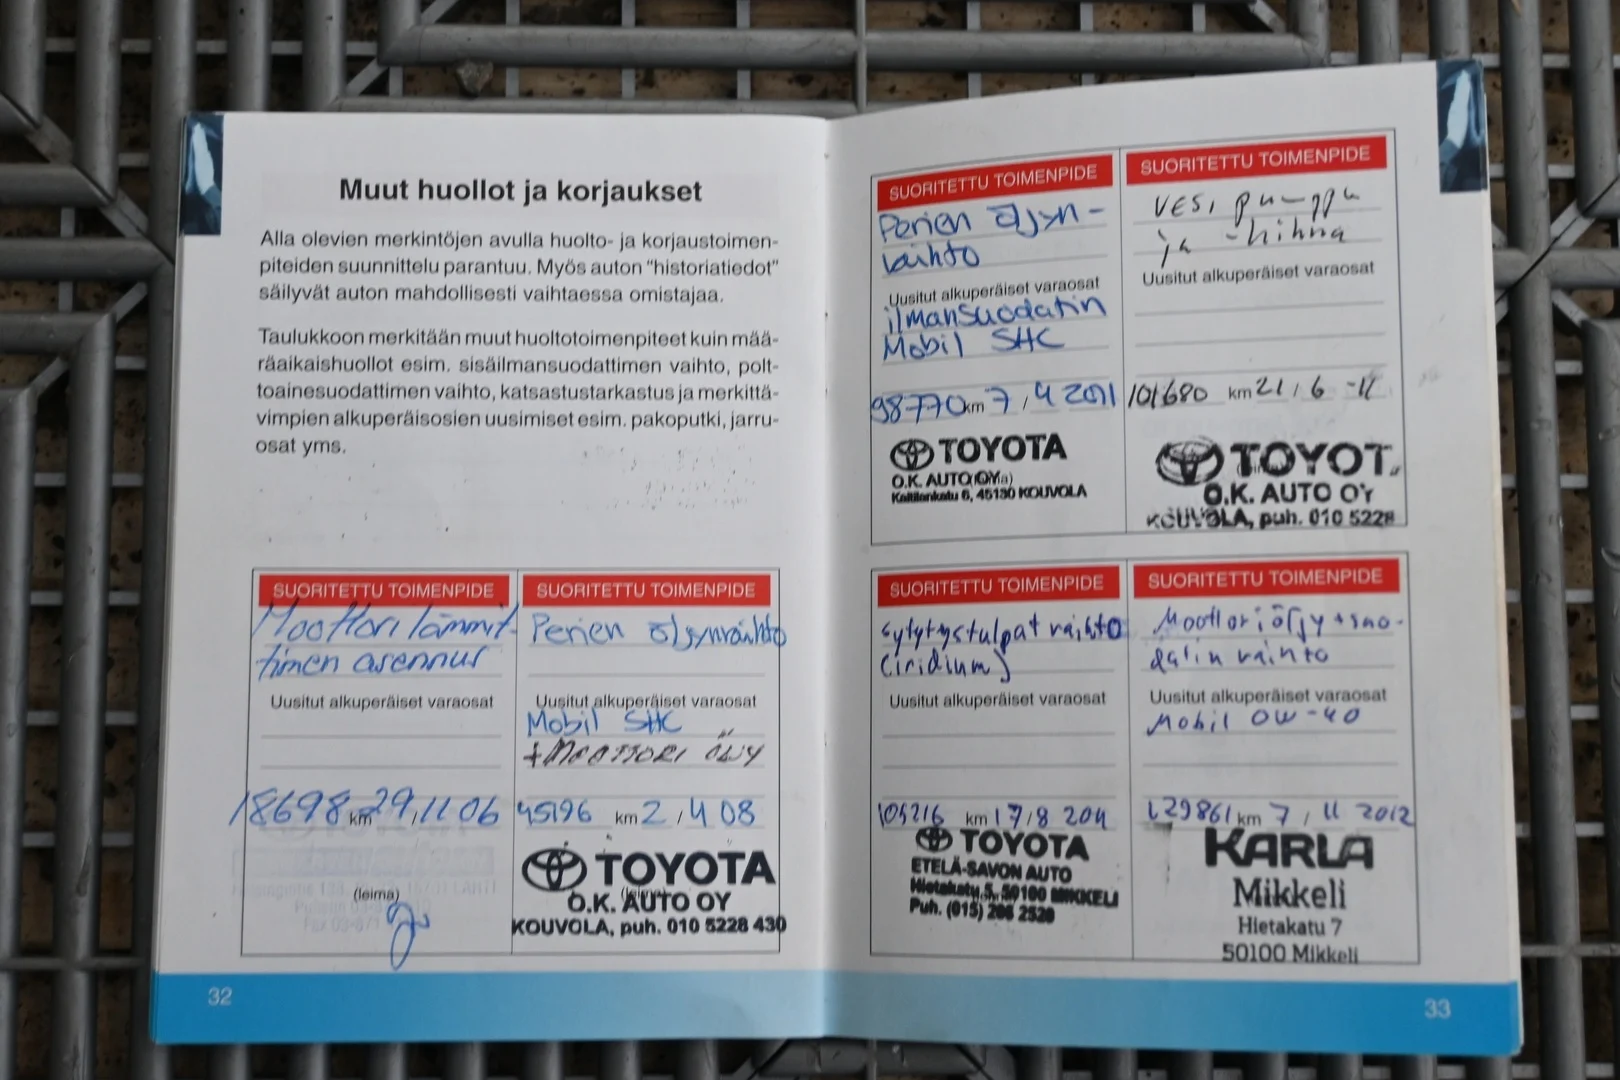 Muut huollot ja korjaukset
Alla olevien merkintöjen avulla huolto- ja korjaustoimen-
piteiden suunnittelu parantuu. Myös auton "historiatiedot"
säilyvät auton mahdollisesti vaihtaessa omistajaa.
Taulukkoon merkitään muut huoltotoimenpiteet kuin mää-
räaikaishuollot esim. sisäilmansuodattimen vaihto, polt-
toainesuodattimen vaihto, katsastustarkastus ja merkittä-
vimpien alkuperäisosien uusimiset esim. pakoputki, jarru-
osat yms.
SUORITETTU TOIMENPIDE
Moottorilämmit-
timen asennus
Uusitut alkuperäiset varaosat
18698 km 29/11 06
(leima)
SUORITETTU TOIMENPIDE
Perien öljynvaihto
Uusitut alkuperäiset varaosat
Mobil SHC
+MOOTTORI ÖLJY
45196 km 2/4 08
TOYOTA
(leima)
O.K. AUTO OY
KOUVOLA, puh. 010 5228 430
32
SUORITETTU TOIMENPIDE
Perien öljyn-
vaihto
Uusitut alkuperäiset varaosat
ilmansuodatin
Mobil SHC
98770 km 7/4 2011
TOYOTA
O.K. AUTO OY
Kaltilankatu 6, 45130 KOUVOLA
SUORITETTU TOIMENPIDE
Vesipumppu
ja -hihna
Uusitut alkuperäiset varaosat
101680 km 21/6 -11
TOYOT
O.K. AUTO OY
KOUVOLA, puh. 010 5228
SUORITETTU TOIMENPIDE
sytytystulpat vaihto
(iridium)
Uusitut alkuperäiset varaosat
km 17/8 2011
TOYOTA
ETELÄ-SAVON AUTO
Hietakatu 5, 50100 MIKKELI
Puh. (015) 206 2520
SUORITETTU TOIMENPIDE
Moottoriöljy + suo-
datin vaihto
Uusitut alkuperäiset varaosat
Mobil 0W-40
129861 km 7/11 2012
KARLA
Mikkeli
Hietakatu 7
50100 Mikkeli
33